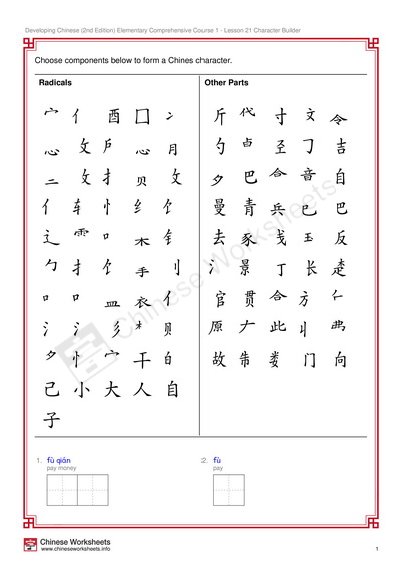 Developing Chinese (2nd Edition) Elementary Comprehensive Course 1 - Lesson 21 Character Builder
Choose components below to form a Chines character.
Radicals
宀 亻 酉 囗 冫
心 攵 户 心 月
二 攵 扌 贝 攵
亻 车 忄 纟 饣
辶 ⻗ 口 木 钅
勹 扌 饣 手 刂
口 口 皿 衣 亻
氵 氵 彡 木 貝
夕 忄 宀 干 白
己 小 大 人 自
子
Other Parts
斤 代 寸 文 令
勺 占 圣 丁 吉
夕 巴 合 音 自
曼 青 兵 巳 巴
去 豕 戋 玉 反
氵 景 丁 长 走
官 贯 合 方 亻
原 𠂇 此 刂
故 娄 门 向
1. fù qián
pay money
2. fù
pay
Chinese Worksheets
Chinese Worksheets
www.chineseworksheets.info
1